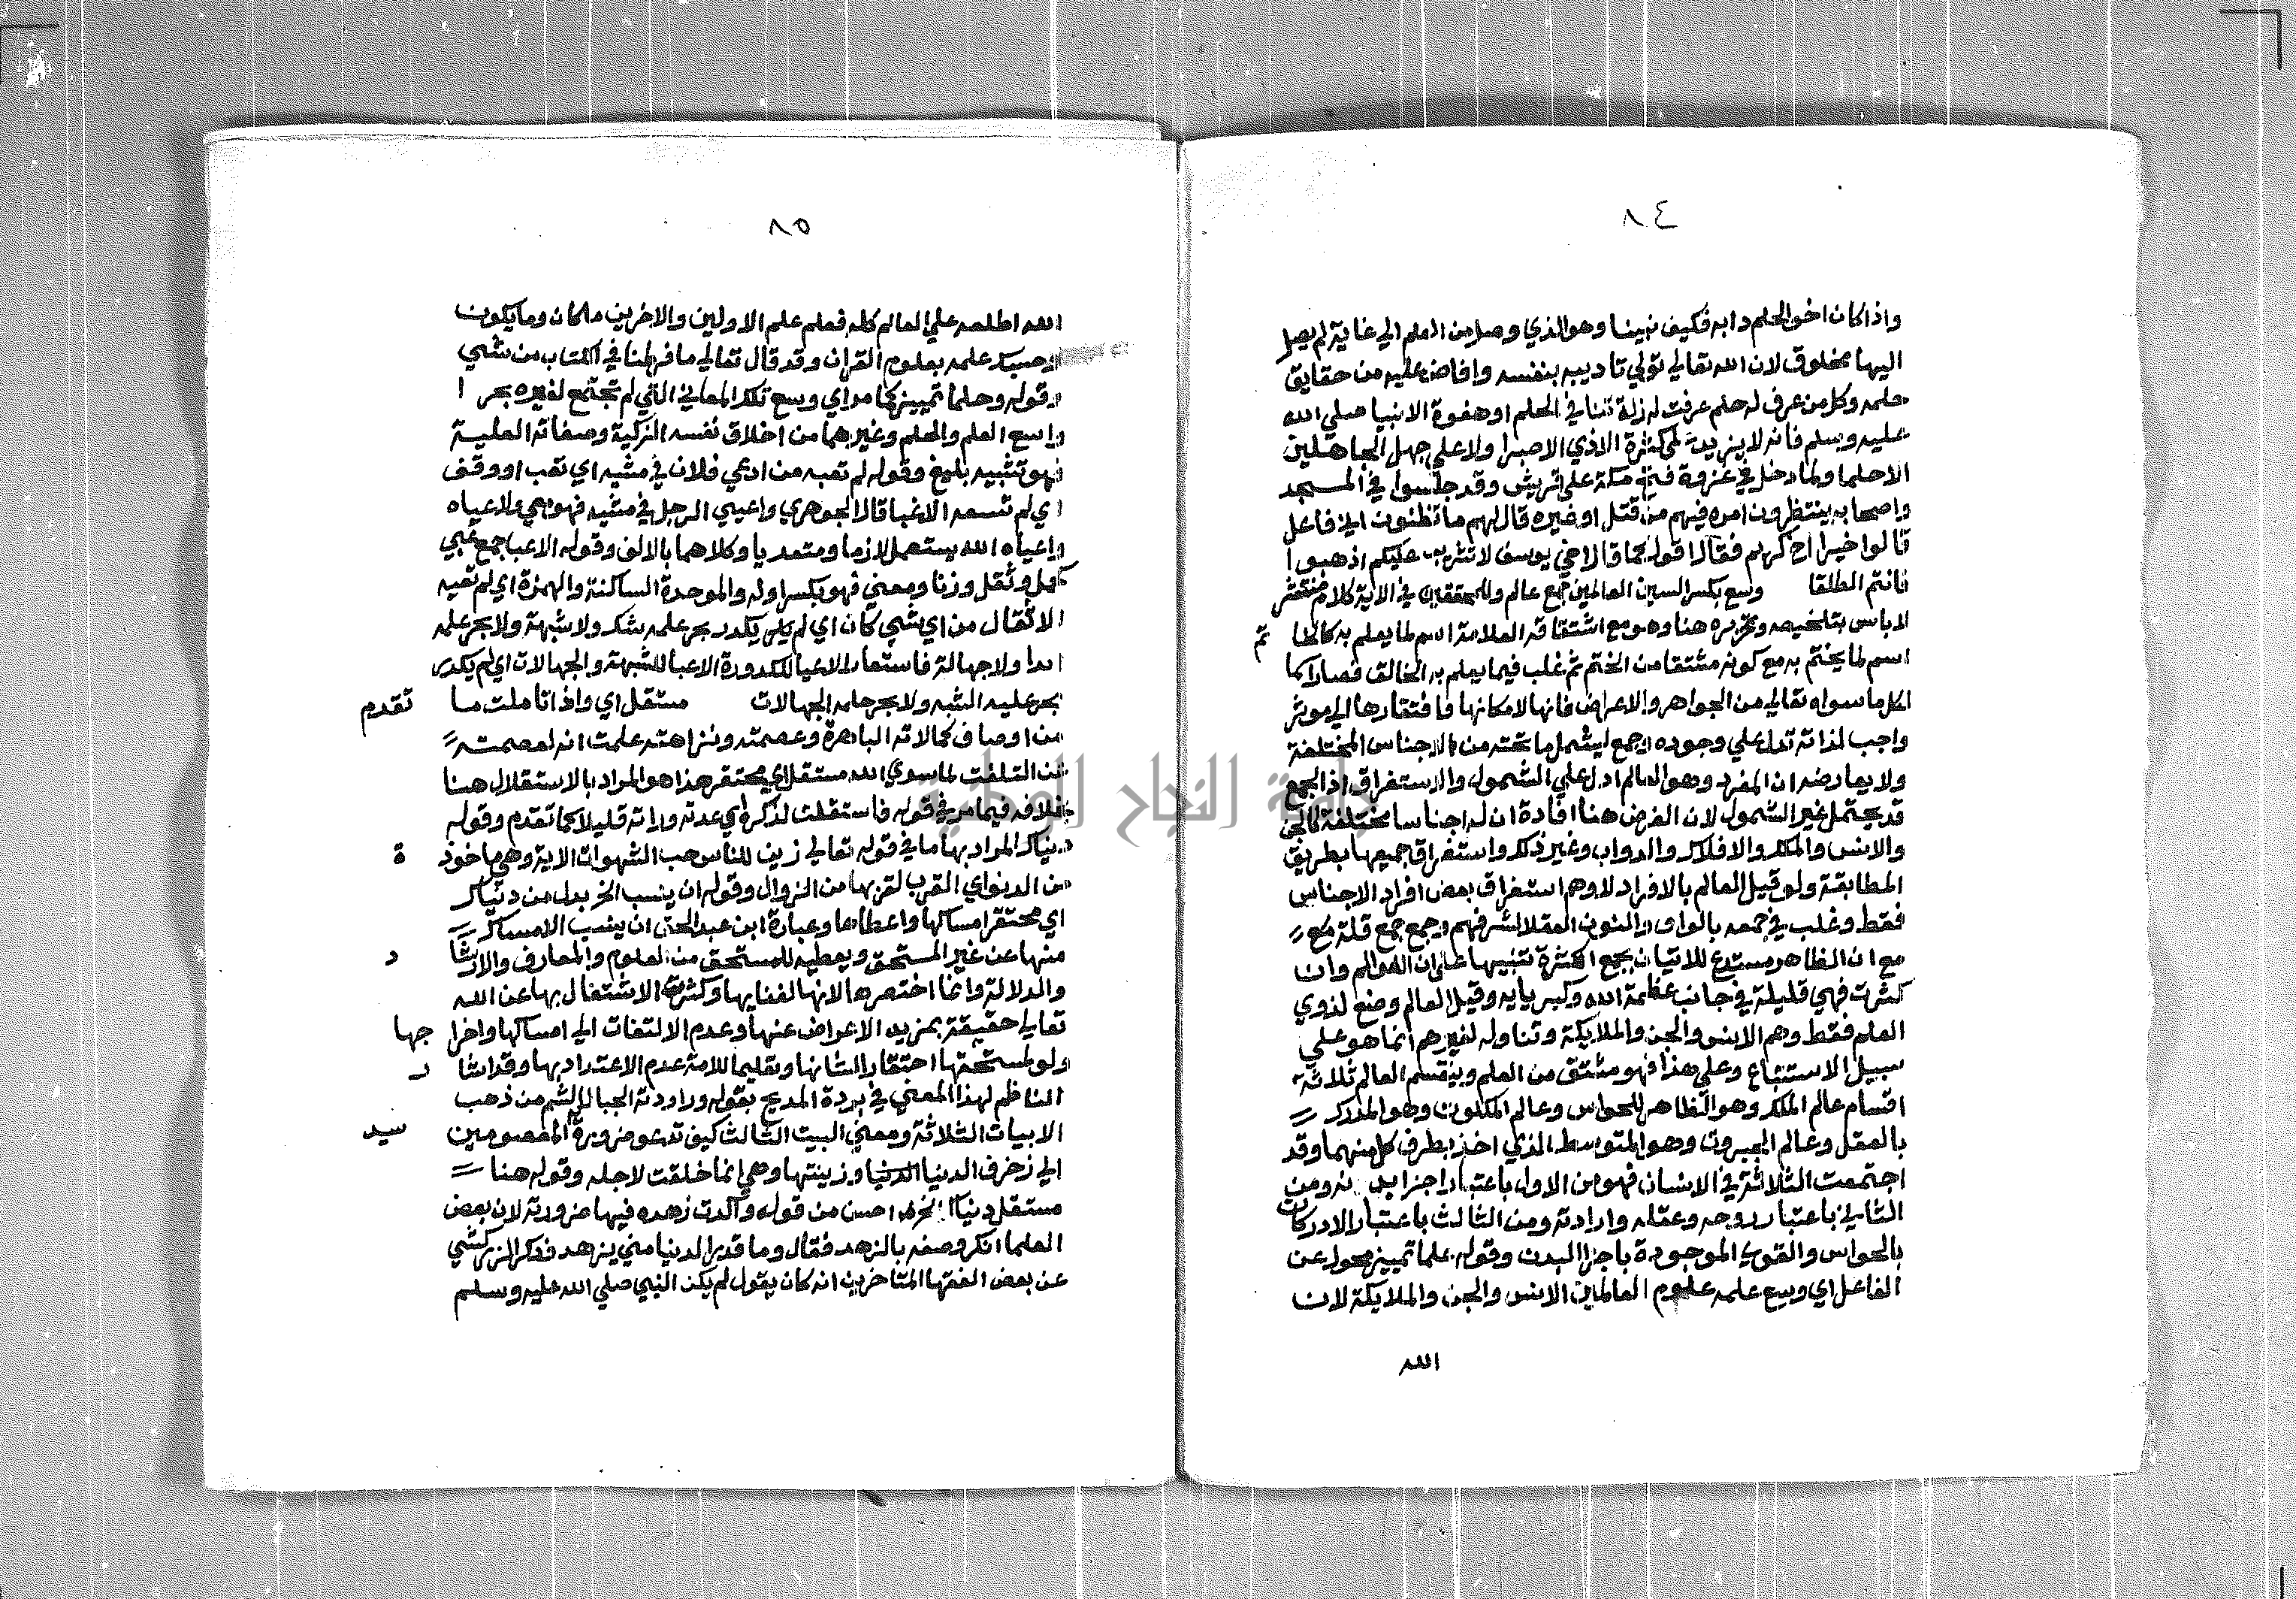 ٨٤
واذا كان اخو الحلم دابه فكيف نبينا وهو الذي وصل من العلم الي غاية لم يصل
اليها مخلوق لان الله تعالي تولي تاديبه بنفسه وافاض عليه من حقايق
حلمه وكل من عرف له حلم عرفت له زلة تنافي الحلم او هفوة الا نبينا صلي الله
عليه وسلم فانه لا يزيده علي كثرة الاذي الا صبرا ولا علي جهل الجاهلين
الا حلما ولما دخل في غزوة فتح مكة علي قريش وقد جلسوا في المسجد
واصحابه ينتظرون امره فيهم من قتل او غيره قال لهم ما تظنون اني فاعل
قالوا خيرا اخ كريم فقال اقول كما قال اخي يوسف لا تثريب عليكم اذهبوا
فانتم الطلقا وسع بكسر السين العالمين جمع عالم وللمحققين في الاية كلام منتشر
لاباس بتلخيصه وتحريره هنا وهو مع اشتقاقه العلامة اسم لما يعلم به كالخا تم
اسم لما يختم به مع كونه مشتقا من الختم ثم غلب فيما يعلم به الخالق فصار اسما
لكل ما سواه تعالي من الجواهر والاعراض فانها لامكانها وافتقارها الي موثر
واجب لذاته تدل علي وجوده وجمع ليشمل ما تحته من الاجناس المختلفة
ولا يعارضه ان المفرد وهو العالم ادل علي الشمول والاستغراق اذ الجمع
قد يحتمل غير الشمول لان الغرض هنا افادة ان له اجناسا مختلفة كالجن
والانس والملك والافلاك والدواب وغير ذلك واستغراق جميعها بطريق
المطابقة ولو قيل العالم بالافراد لاوهم استغراق بعض افراد الاجناس
فقط وغلب في جمعه بالواو والنون العقلا لشرفهم وجمع جمع قلة مع
مع ان الظاهر مستدع للاتيان بجمع الكثرة تنبيها علي ان العوالم وان
كثرت فهي قليلة في جانب عظمة الله وكبريايه وقيل العالم وضع لذوي
العلم فقط وهم الانس والجن والملايكة وتناوله لغيرهم انما هو علي
سبيل الاستتباع وعلي هذا فهو مشتق من العلم وينقسم العالم ثلاثة
اقسام عالم الملك وهو الظاهر للحواس وعالم الملكوت وهو المدرك
بالعقل وعالم الجبروت وهو المتوسط الذي اخذ بطرف كل منهما وقد
اجتمعت الثلاثة في الانسان فهو من الاول باعتبار اجزا بدنه ومن
الثاني باعتبار روحه وعقله وارادته ومن الثالث باعتبار الادراكات
بالحواس والقوي الموجودة باجزا البدن وقوله علما تمييز محول عن
الفاعل اي وسع علمه علوم العالمين الانس والجن والملايكة لان
الله
٨٥
الله اطلعه علي العالم كله فعلم علم الاولين والاخرين ما كان وما يكون
وحسبك علمه بعلوم القران وقد قال تعالي ما فرطنا في الكتاب من شيي
وقوله وحلما تمييز كما مر اي وسع تلك المعاني التي لم تجتمع لغيره بحر ا
واسع العلم والحلم وغيرهما من اخلاق نفسه الزكية وصفاته العلية
فهو تشبيه بليغ وقوله لم تعبه من اعيي فلان في مشيه اي تعب او وقف
اي لم تسعه الاعبا قال الجوهري واعيي الرجل في مشيه فهو معي ولا عياه
واعياه الله يستعمل لازما ومتعديا وكلاهما بالالف وقوله الاعبا جمع عبي
كحمل وثقل وزنا ومعني فهو بكسر اوله والموحدة الساكنة والهمزة اي لم تعيه
الاثقال من اي شي كان اي لم يكدر بحر علمه شك ولا شبهة ولا بحر حلمه
ابدا ولا جهالة فاستعار الاعيا للكدورة الاعبا للشبهة والجهالات اي لم يكدر
بحر علمه الشبه ولا بحر حلمه الجهالات مستقل اي واذا تاملت ما تقدم
من اوصاف كمالاته الباهرة وعصمته ونزاهته علمت انه لعصمته
عن التلفت لما سوي الله مستقل اي محتقر هذا هو المراد بالاستقلال هنا
بخلافه فيما مر في قوله فاستقلت لذكره اي عدته وراته قليلا كما تقدم وقوله
دنياك المراد بها ما في قوله تعالي زين للناس حب الشهوات الاية وهي ماخوذ ة
من الدنو اي القرب لقربها من الزوال وقوله ان ينسب الخ بدل من دنياك
اي محتقر امساكها واعطاها وعبارة ابن عبد الحق ان ينسب الامساك
منها عن غير المستحق ويعطيه للمستحق من العلوم والمعارف والارشا د
والدلالة وانما اختصرها لانها لفنايها وكثرة الاشتغال بها عن الله
تعالي حقيقة بمزيد الاعراض عنها وعدم الالتفات الي امساكها واخرا جها
ولو لمستحقها احتقارا لشانها وتعليما للامة عدم الاعتداد بها وقد اشا ر
الناظم لهذا المعني في بردة المديح بقوله وراودته الجبال الشم من ذهب
الابيات الثلاثة ومعني البيت الثالث كيف تدعو ضرورة المعصومين سيد
الي زخرف الدنيا وزينتها وهي انما خلقت لاجله وقوله هنا
مستقل دنياك الخ احسن من قوله واكدت زهده فيها ضرورته لان بعض
العلما انكر وصفه بالزهد فقال وما قدر الدنيا مني يزهد فذكر الزركشي
عن بعض الفقها المتاخرين انه كان يقول لم يكن النبي صلي الله عليه وسلم